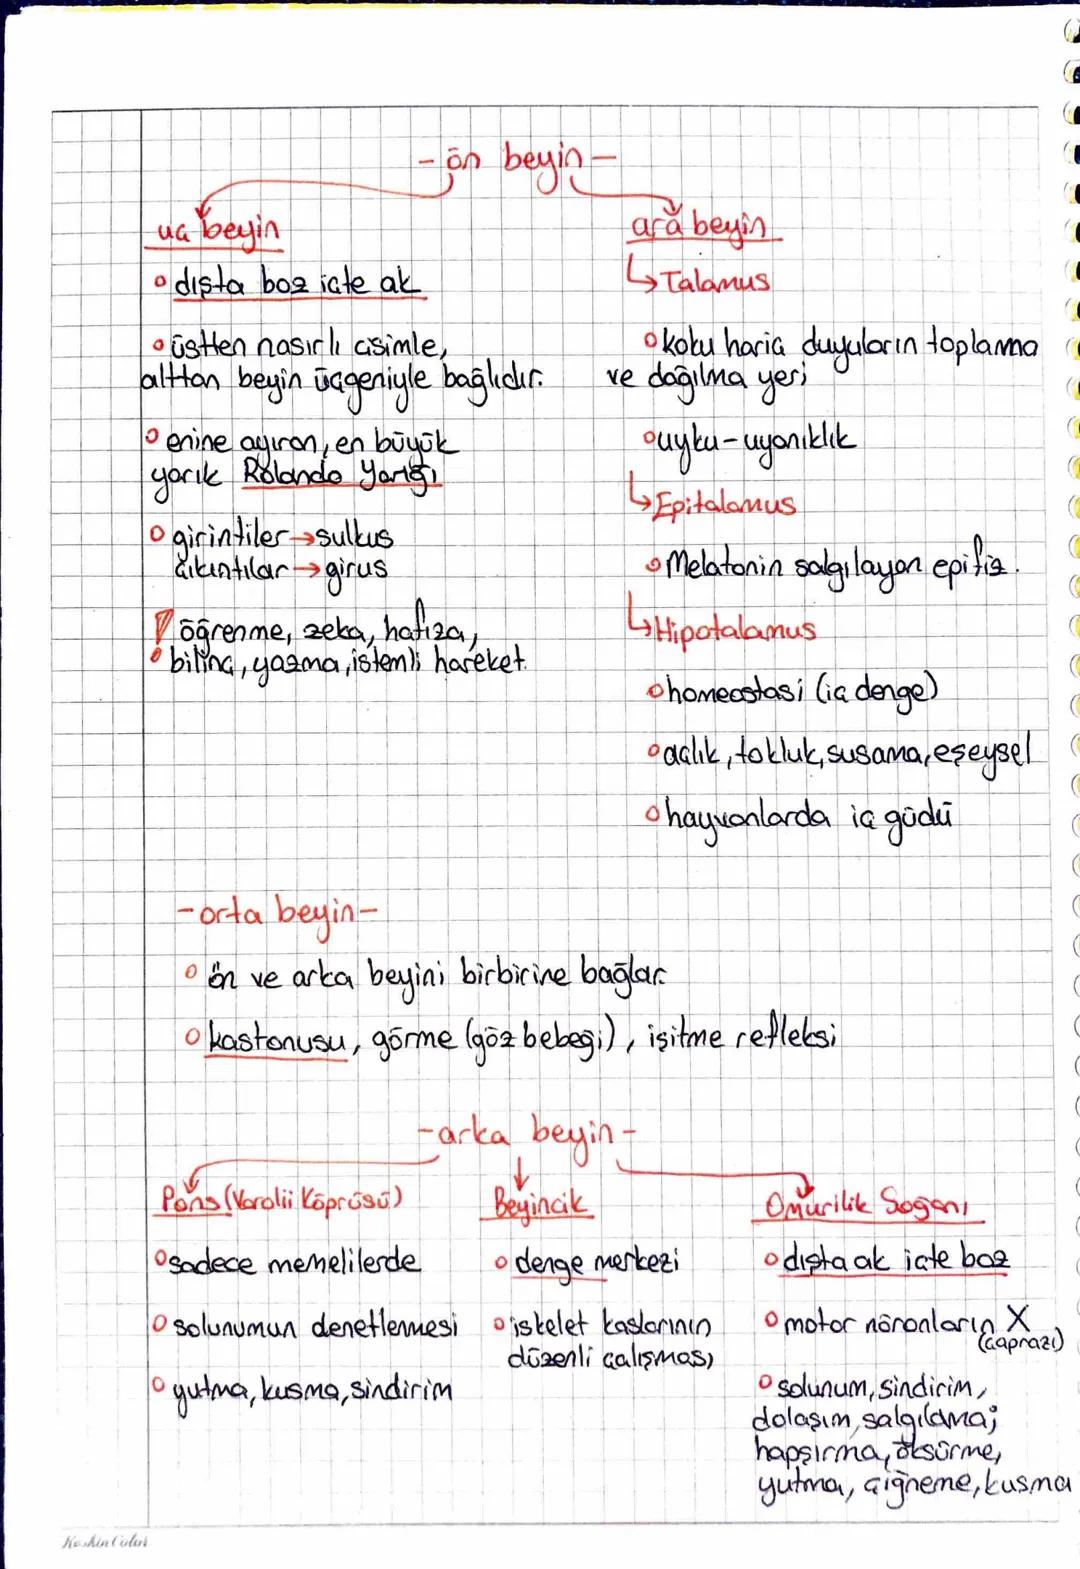 - ön beyin -
uç beyin
• dışta boz içte ak
• üstten nasırlı cisimle,
alttan beyin üçgeniyle bağlıdır.
• enine ayıran, en büyük
yarık Rolando Yarığı
• girintiler → sulkus
çıkıntılar → girus
! öğrenme, zeka, hafıza,
bilinç, yazma, istemli hareket.
ara beyin
↳ Talamus
• koku hariç duyuların toplanma
ve dağılma yeri
• uyku-uyanıklık
↳ Epitalamus
• Melatonin salgılayan epifiz.
↳ Hipotalamus
• homeostasi (iç denge)
• açlık, tokluk, susama, eşeysel
• hayvanlarda iç güdü
- orta beyin -
• ön ve arka beyini birbirine bağlar.
• kastonusu, görme (göz bebeği), işitme refleksi
- arka beyin -
Pons (Varolii Köprüsü)
• sadece memelilerde
• solunumun denetlenmesi
• yutma, kusma, sindirim
Beyincik
• denge merkezi
• iskelet kaslarının
düzenli çalışması
Omurilik Soğanı
• dışta ak içte boz
• motor nöronların X
(çaprazı)
• solunum, sindirim,
dolaşım, salgılama;
hapşırma, öksürme,
yutma, çiğneme, kusma
Keskin Color